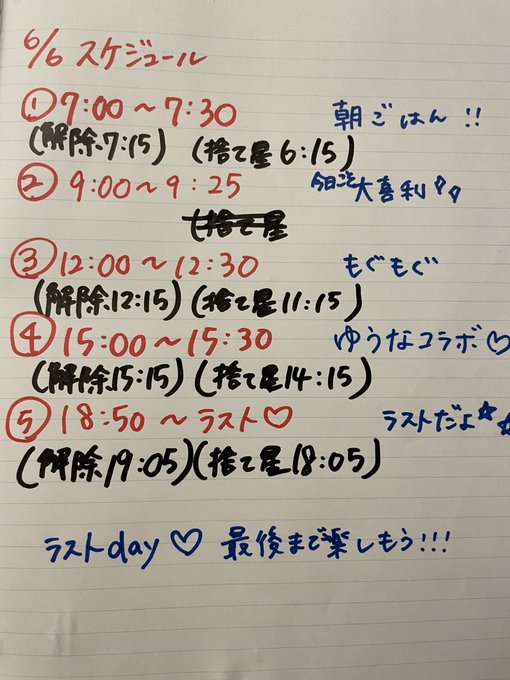 6/6 スケジュール
①7:00～7:30 朝ごはん!!
(解除.7:15) (捨て星6:15)
②9:00～9:25 今日こそ大喜利
捨て星
③12:00～12:30 もぐもぐ
(解除.12:15) (捨て星11:15)
④15:00～15:30 ゆうなコラボ♡
(解除15:15) (捨て星14:15)
⑤18:50～ラスト♡ ラストだよ☆☆
(解除19:05)(捨て星18:05)
ラストday♡ 最後まで楽しもう!!!